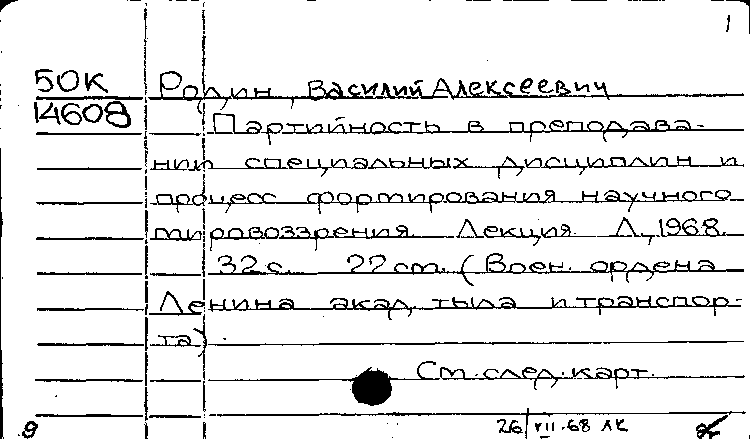 1
50К Родин, Василий Алексеевич
14608 Партийность в преподава-
нии специальных дисциплин и
процесс формирования научного
мировоззрения. Лекция. Л., 1968.
32 с. 22 см. (Воен. ордена
Ленина акад. тыла и транспор-
та).
См. след. карт.
26/VII.68 ЛК